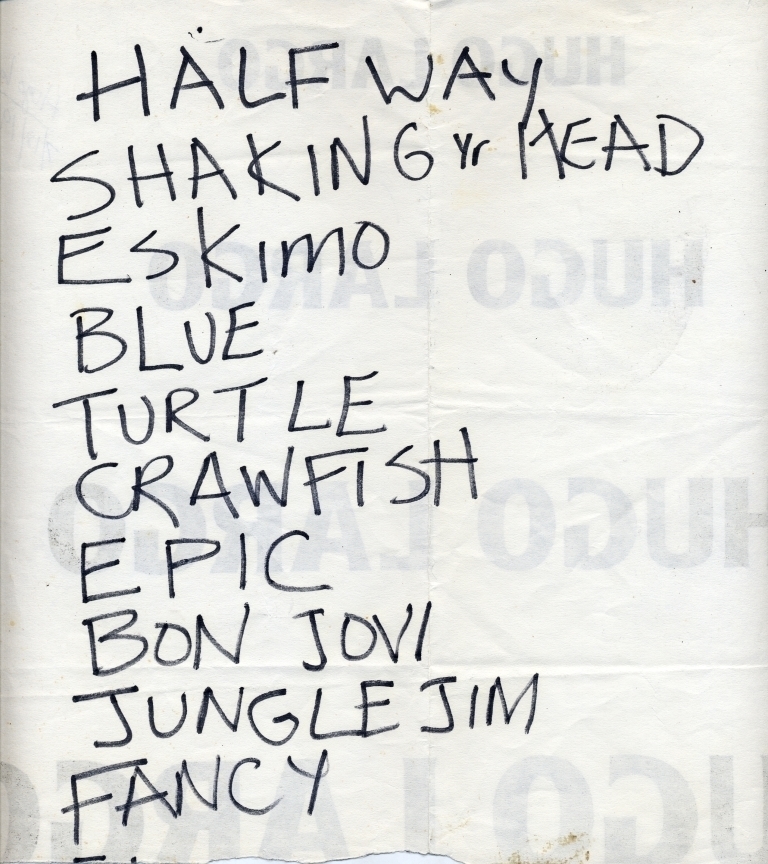 HALFWAY
SHAKING yr HEAD
ESKIMO
BLUE
TURTLE
CRAWFISH
EPIC
BON JOVI
JUNGLE JIM
FANCY
HUGO LARGO
HUGO LARGO
HUGO LARGO
HUGO LARGO